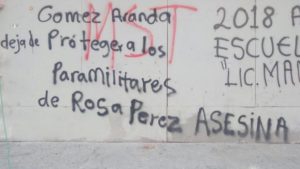 Gomez Aranda
deja de Proteger a los
Paramilitares
de Rosa Perez ASESINA
MST
2018 A
ESCUEL
"LIC. MA